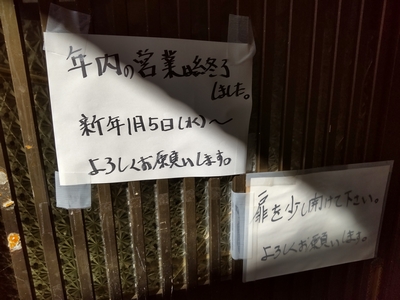 年内の営業は終了
しました。
新年1月5日(水)～
よろしくお願いします。
扉を少し開けて下さい。
よろしくお願いします。